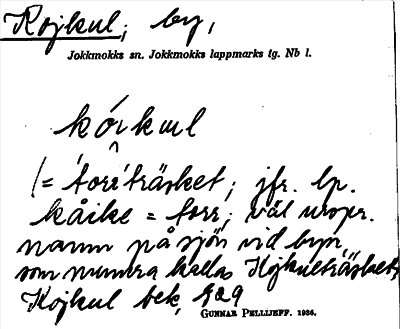 Kojkul; by,
Jokkmokks sn. Jokkmokks lappmarks tg. Nb l.
kó̂ikul
(= 'torrträsket; jfr. lp.
kåike = torr; väl urspr.
namn på sjön vid byn,
som numera kallas Kojkulträsket,
Kojkul bek, 929
GUNNAR PELLIJEFF. 1936.